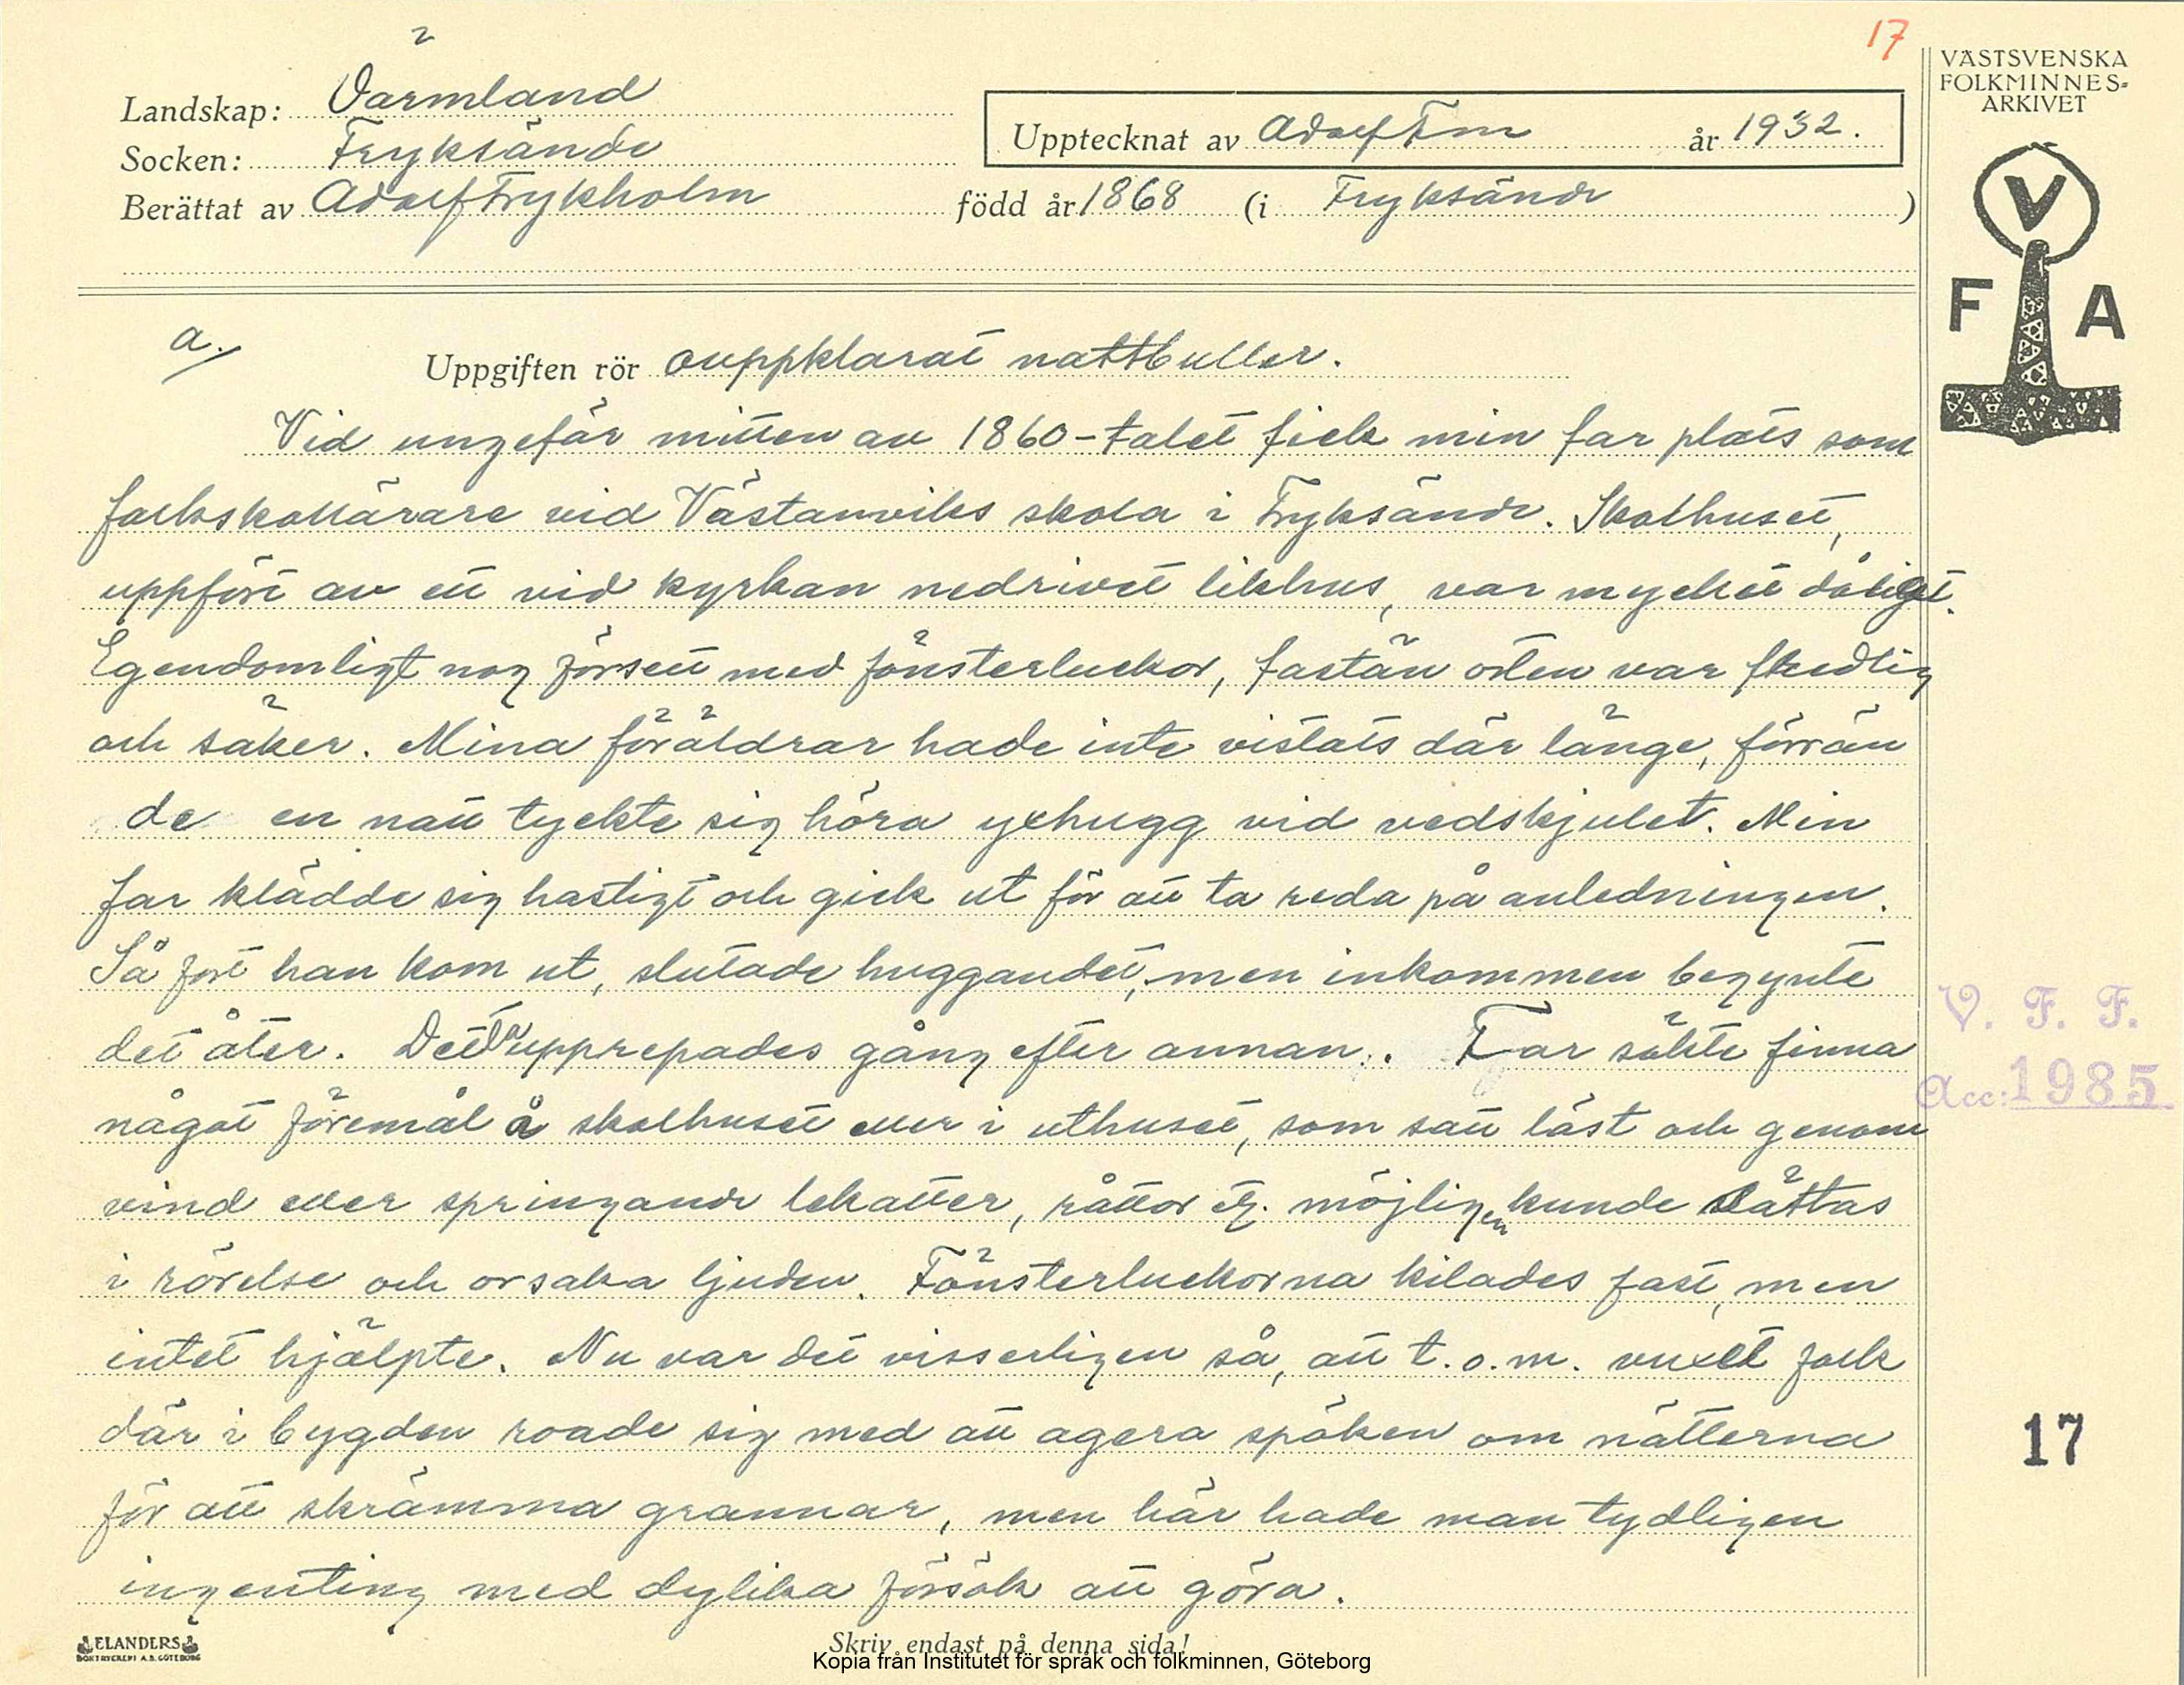 17
VÄSTSVENSKA
FOLKMINNES-
ARKIVET
Landskap: Värmland
Socken: Fryksände
Upptecknat av Adolf Fm år 1932.
Berättat av Adolf Frykholm född år 1868 (i Fryksände)
V
F A
a.
Uppgiften rör ouppklarat nattbuller.
Vid ungefär mitten av 1860-talet fick min far plats som
folkskollärare vid Västanviks skola i Fryksände. Skolhuset,
uppfört av ett vid kyrkan nedrivet likhus, var mycket dåligt.
Egendomligt nog försett med fönsterluckor, fastän orten var fredlig
och säker. Mina föräldrar hade inte vistats där länge, förrän
de en natt tyckte sig höra yxhugg vid vedskjulet. Min
far klädde sig hastigt och gick ut för att ta reda på anledningen.
Så fort han kom ut, slutade huggandet, men inkommen begynte
det åter. Detta upprepades gång efter annan. Far sökte finna
något föremål å skolhuset eller i uthuset, som satt löst och genom
vind eller springande lekatter, råttor etc. möjligen kunde sättas
i rörelse och orsaka ljuden. Fönsterluckorna kilades fast, men
intet hjälpte. Nu var det visserligen så, att t.o.m. vuxet folk
där i bygden roade sig med att agera spöken om nätterna
för att skrämma grannar, men här hade man tydligen
ingenting med dylika försök att göra.
V. F. F.
Acc: 1985.
17
ELANDERS
BOKTRYCKERI A.B. GÖTEBORG
Skriv endast på denna sida!
Kopia från Institutet för språk och folkminnen, Göteborg